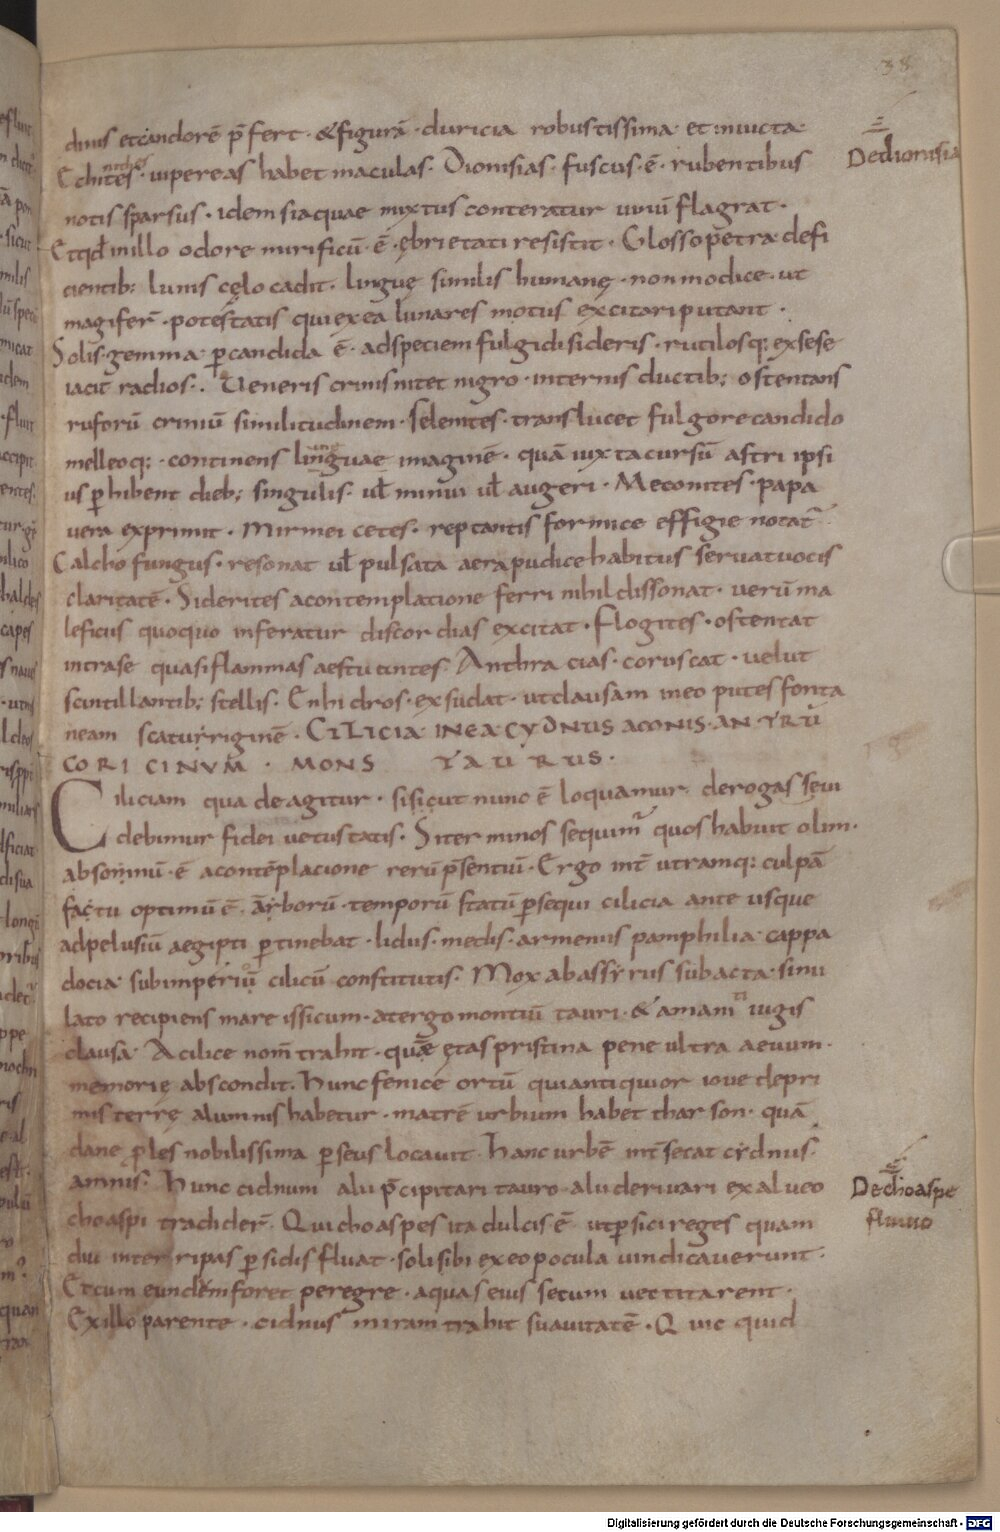 38
dinis et candorē p̄fert · & figurā · duricia robustissima et inuicta
Echites · uipereas habet maculas · Dionisias · fuscus · ē · rubentibus
De dionisia
notis sparsus · idem siaquae mixtus conteratur uinū flagrat ·
Etqđ in illo odore mirificū · ē · ębrietati resistit · Glossopetra defi
cientib; lunis cęlo cadit · linguę similis humanę · non modice · ut
magi fer̄ · potestatis qui ex ea lunares motus excitari putant ·
Solis gemma p̱candida ē · ad speciem fulgidi sideris · rutilosq; ex sese
iacit radios ·. Ueneris crinis nitet nigro · internis ductib; ostentans
ruforū criniū similitudinem · Selenites · translucet fulgore candido
melleoq; · continens linguae imaginē · quā iuxta cursū astri ipsi
us p̱hibent dieb; singulis · ul̄ minui ul̄ augeri · Meconites · papa
uera exprimit · Mirmeicetes · reptantis formice effigie notat̄
Calchofungus · resonat ul̄ pulsata aera pudice habitus seruat uocis
claritatē · Siderites a contemplatione ferri nihil dissonat · uerū ma
leficus quoquo inferatur discordias excitat · Flogites · ostentat
intrase quasi flammas aestuantes Anthracias · coruscat · uelut
scintillantib; stellis · Enhidros · exsudat · ut clausam in eo putes fonta
neam scaturriginē · CILICIA IN EA CYDNUS ACONIS · ANTRŪ
CORICINVM · MONS TAURUS ·
Ciliciam qua de agitur · si sicut nunc ē loquamur derogasse ui
debimur fidei uetustatis · Si terminos sequim̄ quos habuit olim ·
absonnū · ē a contēplacione rerū p̄sentiū · Ergo int̄ utramq; culpā
factu optimū ē · Arborū · temporū statū p̱sequi cilicia ante usque
ad pelusiū aegipti p̱tinebat · lidus · medis · armenus pamphilia cappa
docia sub imperiū cilicū constitutis · Mox ab assyrus subacta · simu
lato recipiens mare issicum · a tergo montiū tauri · & amani iugis
clausa A cilice nom̄ trahit · quē ętas pristina pene ultra aeuum ·
memorię abscondit · Hunc fenice ortū qui antiquior ioue de pri
mis terrę alumnis habetur · matrē urbium habet tharson · quā
dane ꝓles nobilissima p̱seus locauit · Hanc urbē int̄secat cydnus ·
amnis · Hunc cidnum alii p̄cipitari tauro alii deriuari ex alueo
De choaspe
choaspi tradider̄ · Qui choaspes ita dulcis ē · ut p̱sici reges quam
fluuio
diu inter ripas p̱sidis fluat · soli sibi ex eo pocula uindicauerunt ·
Et cum eundem foret peregre · aquas eius secum uectitarent ·
Ex illo parente · cidnus miram trahit suauitatē · Q uic quid
Digitalisierung gefördert durch die Deutsche Forschungsgemeinschaft - DFG